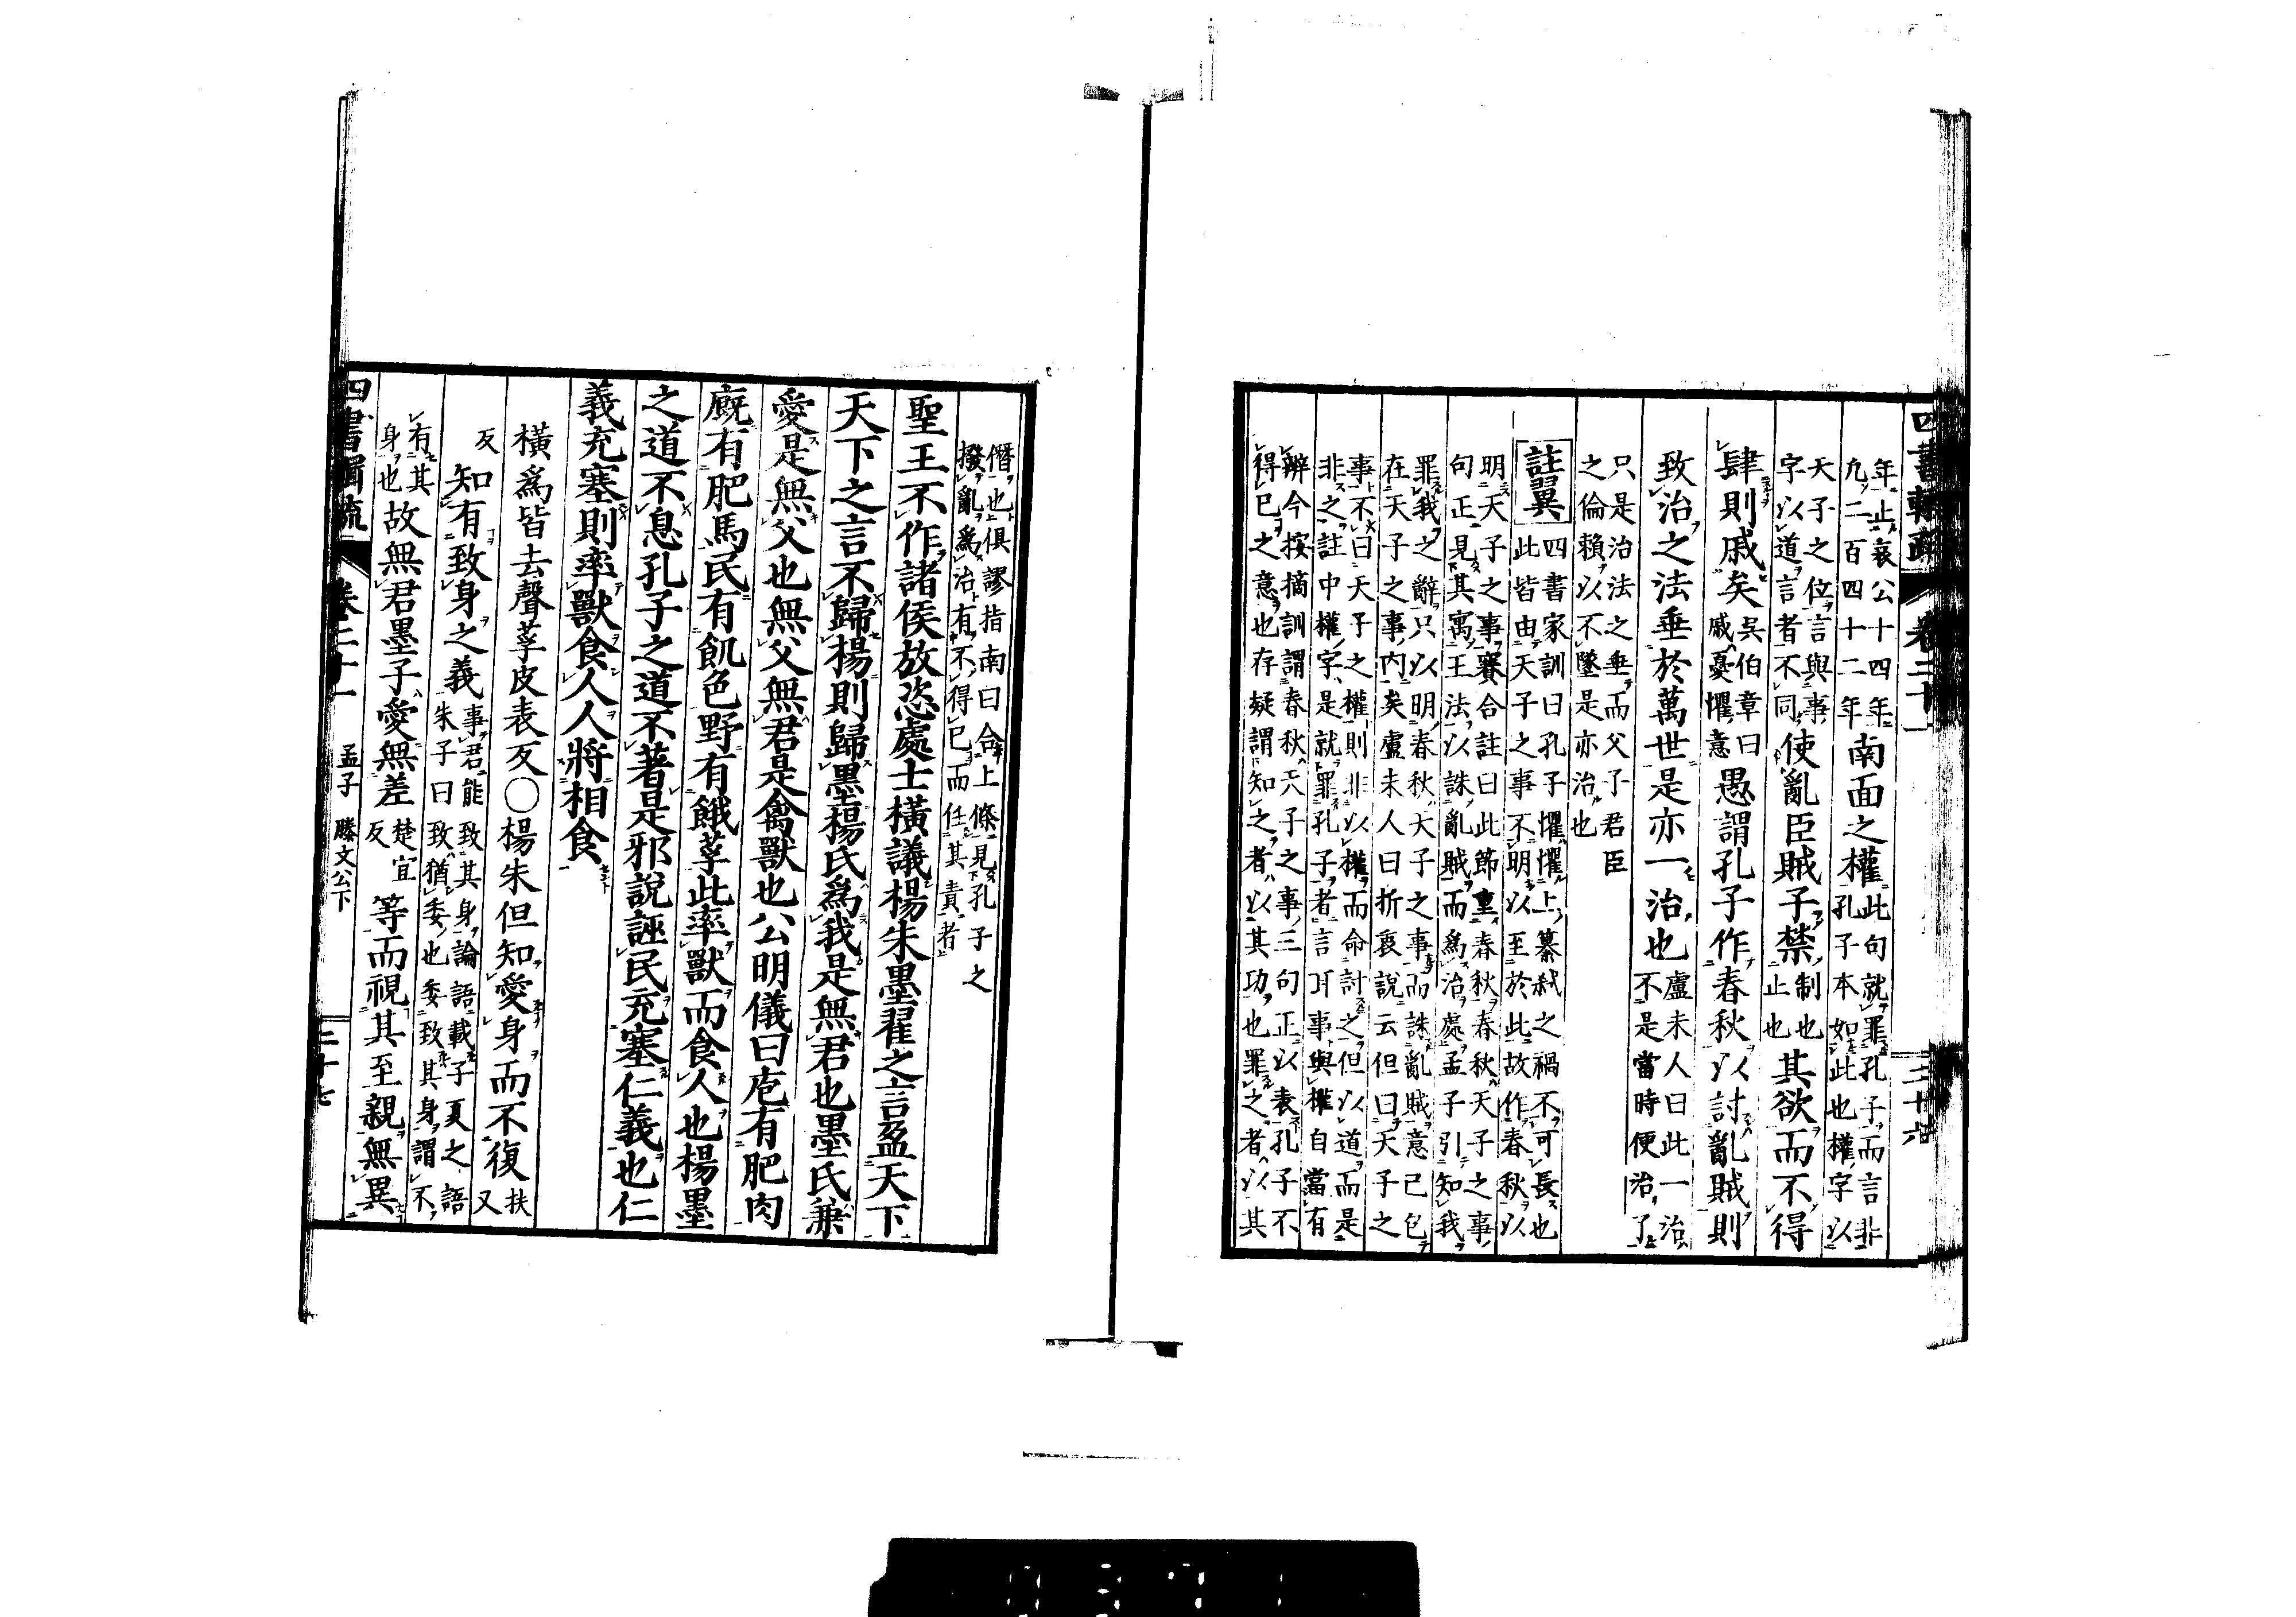 四書輯疏 卷二十一 二十六
年止哀公十四年
凡二百四十二年南面之權此句就罪孔子而言非
孔子本如此也權字以
天子之位言與事
字以道言者不同使亂臣賊子禁制也
止也其欲而不得
肆則戚矣吳伯章曰
戚憂懼意愚謂孔子作春秋以討亂賊則
致治之法垂於萬世是亦一治也盧未人曰此一治
不是當時便治了
只是治法之垂而父子君臣
之倫賴以不墜是亦治也
註翼四書家訓曰孔子懼懼上纂弑之禍不可長也
此皆由天子之事不明以至於此故作春秋以
明天子之事賽合註曰此節重春秋春秋天子之事
句正見其寓王法以誅亂賊而爲治處孟子引知我
罪我之辭只以明春秋天子之事而誅亂賊意已包
在天子之事內矣盧未人曰折衷說云但曰天子之
事不曰天子之權則非以權而命討之但以道而是
非之註中權字是就罪孔子者言耳事與權自當有
辨今按摘訓謂春秋天子之事三句正以表孔子不
得已之意也存疑謂知之者以其功也罪之者以其
僭也俱謬指南曰合上條見孔子之
撥亂爲治有不得已而任其責者
聖王不作諸侯放恣處士橫議楊朱墨翟之言盈天下
天下之言不歸楊則歸墨楊氏爲我是無君也墨氏兼
愛是無父也無父無君是禽獸也公明儀曰庖有肥肉
廐有肥馬民有飢色野有餓莩此率獸而食人也楊墨
之道不息孔子之道不著是邪說誣民充塞仁義也仁
義充塞則率獸食人人將相食
橫爲皆去聲莩皮表反○楊朱但知愛身而不復扶
又
反知有致身之義事君能致其身論語載子夏之語
朱子曰致猶委也委致其身謂不
有其
身也故無君墨子愛無差楚宜
反等而視其至親無異
四書輯疏 卷二十一 孟子 滕文公下 二十七